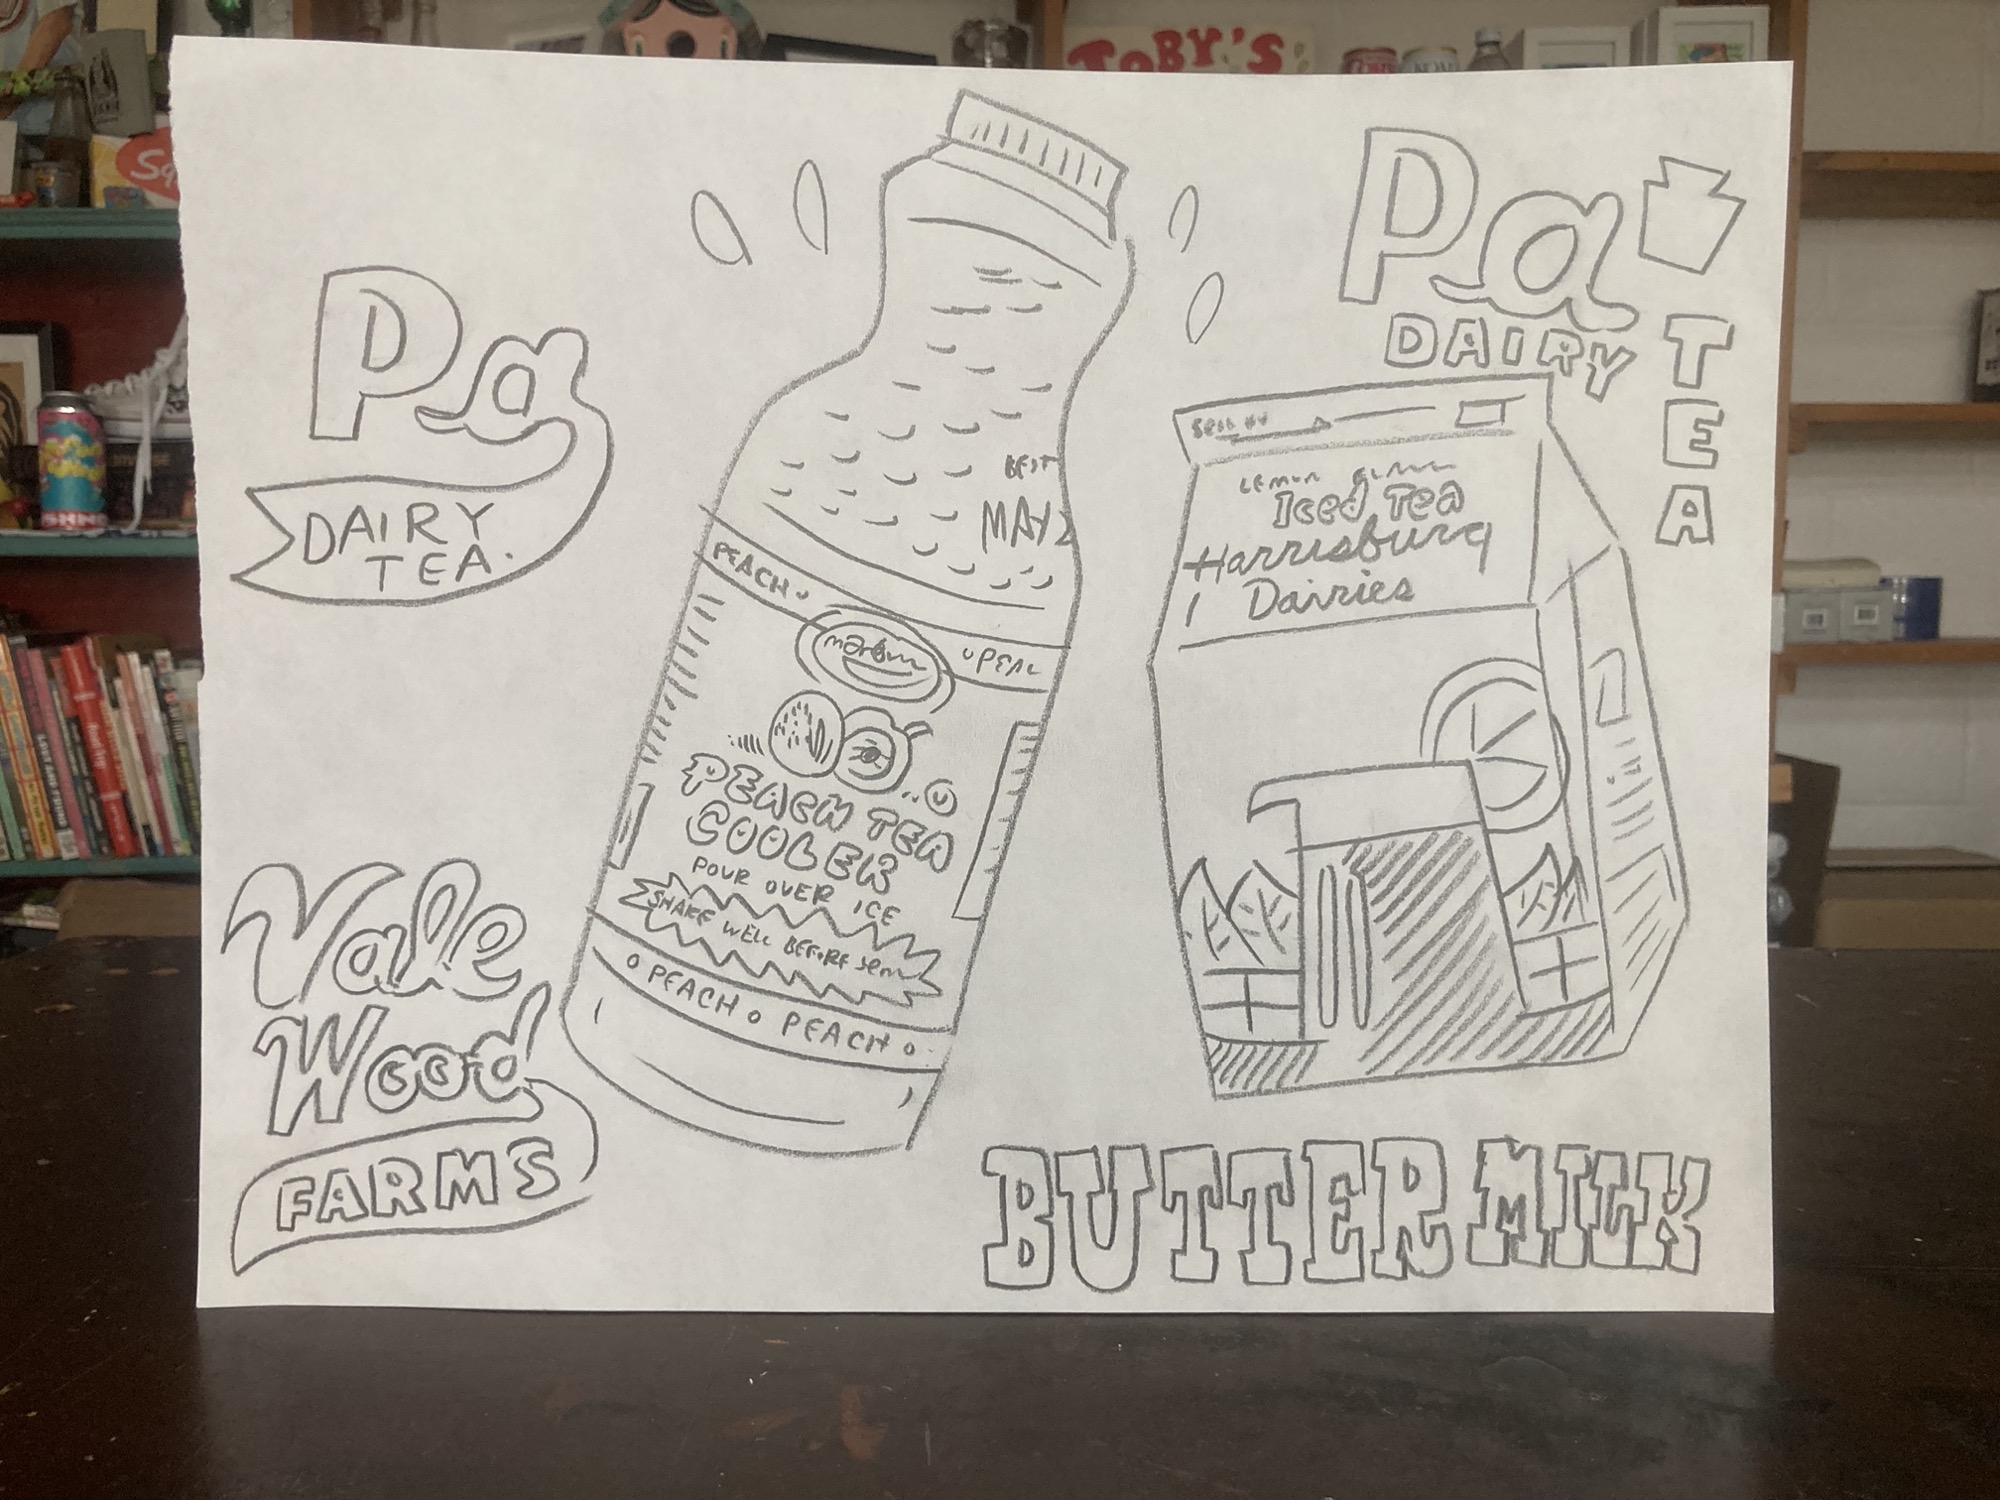 TOBY'S
Pa
DAIRY
TEA
Pa
DAIRY
TEA.
BEST
MAY 2
PEACH
Iced Tea
Harrisburg
Dairies
PEACH TEA
COOLER
POUR OVER ICE
SHAKE WELL BEFORE
PEACH PEACH
Vale
Wood
FARMS
BUTTERMILK